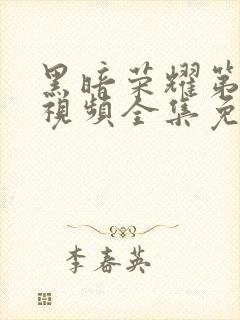 黑暗荣耀第
視頻全集免
李春英